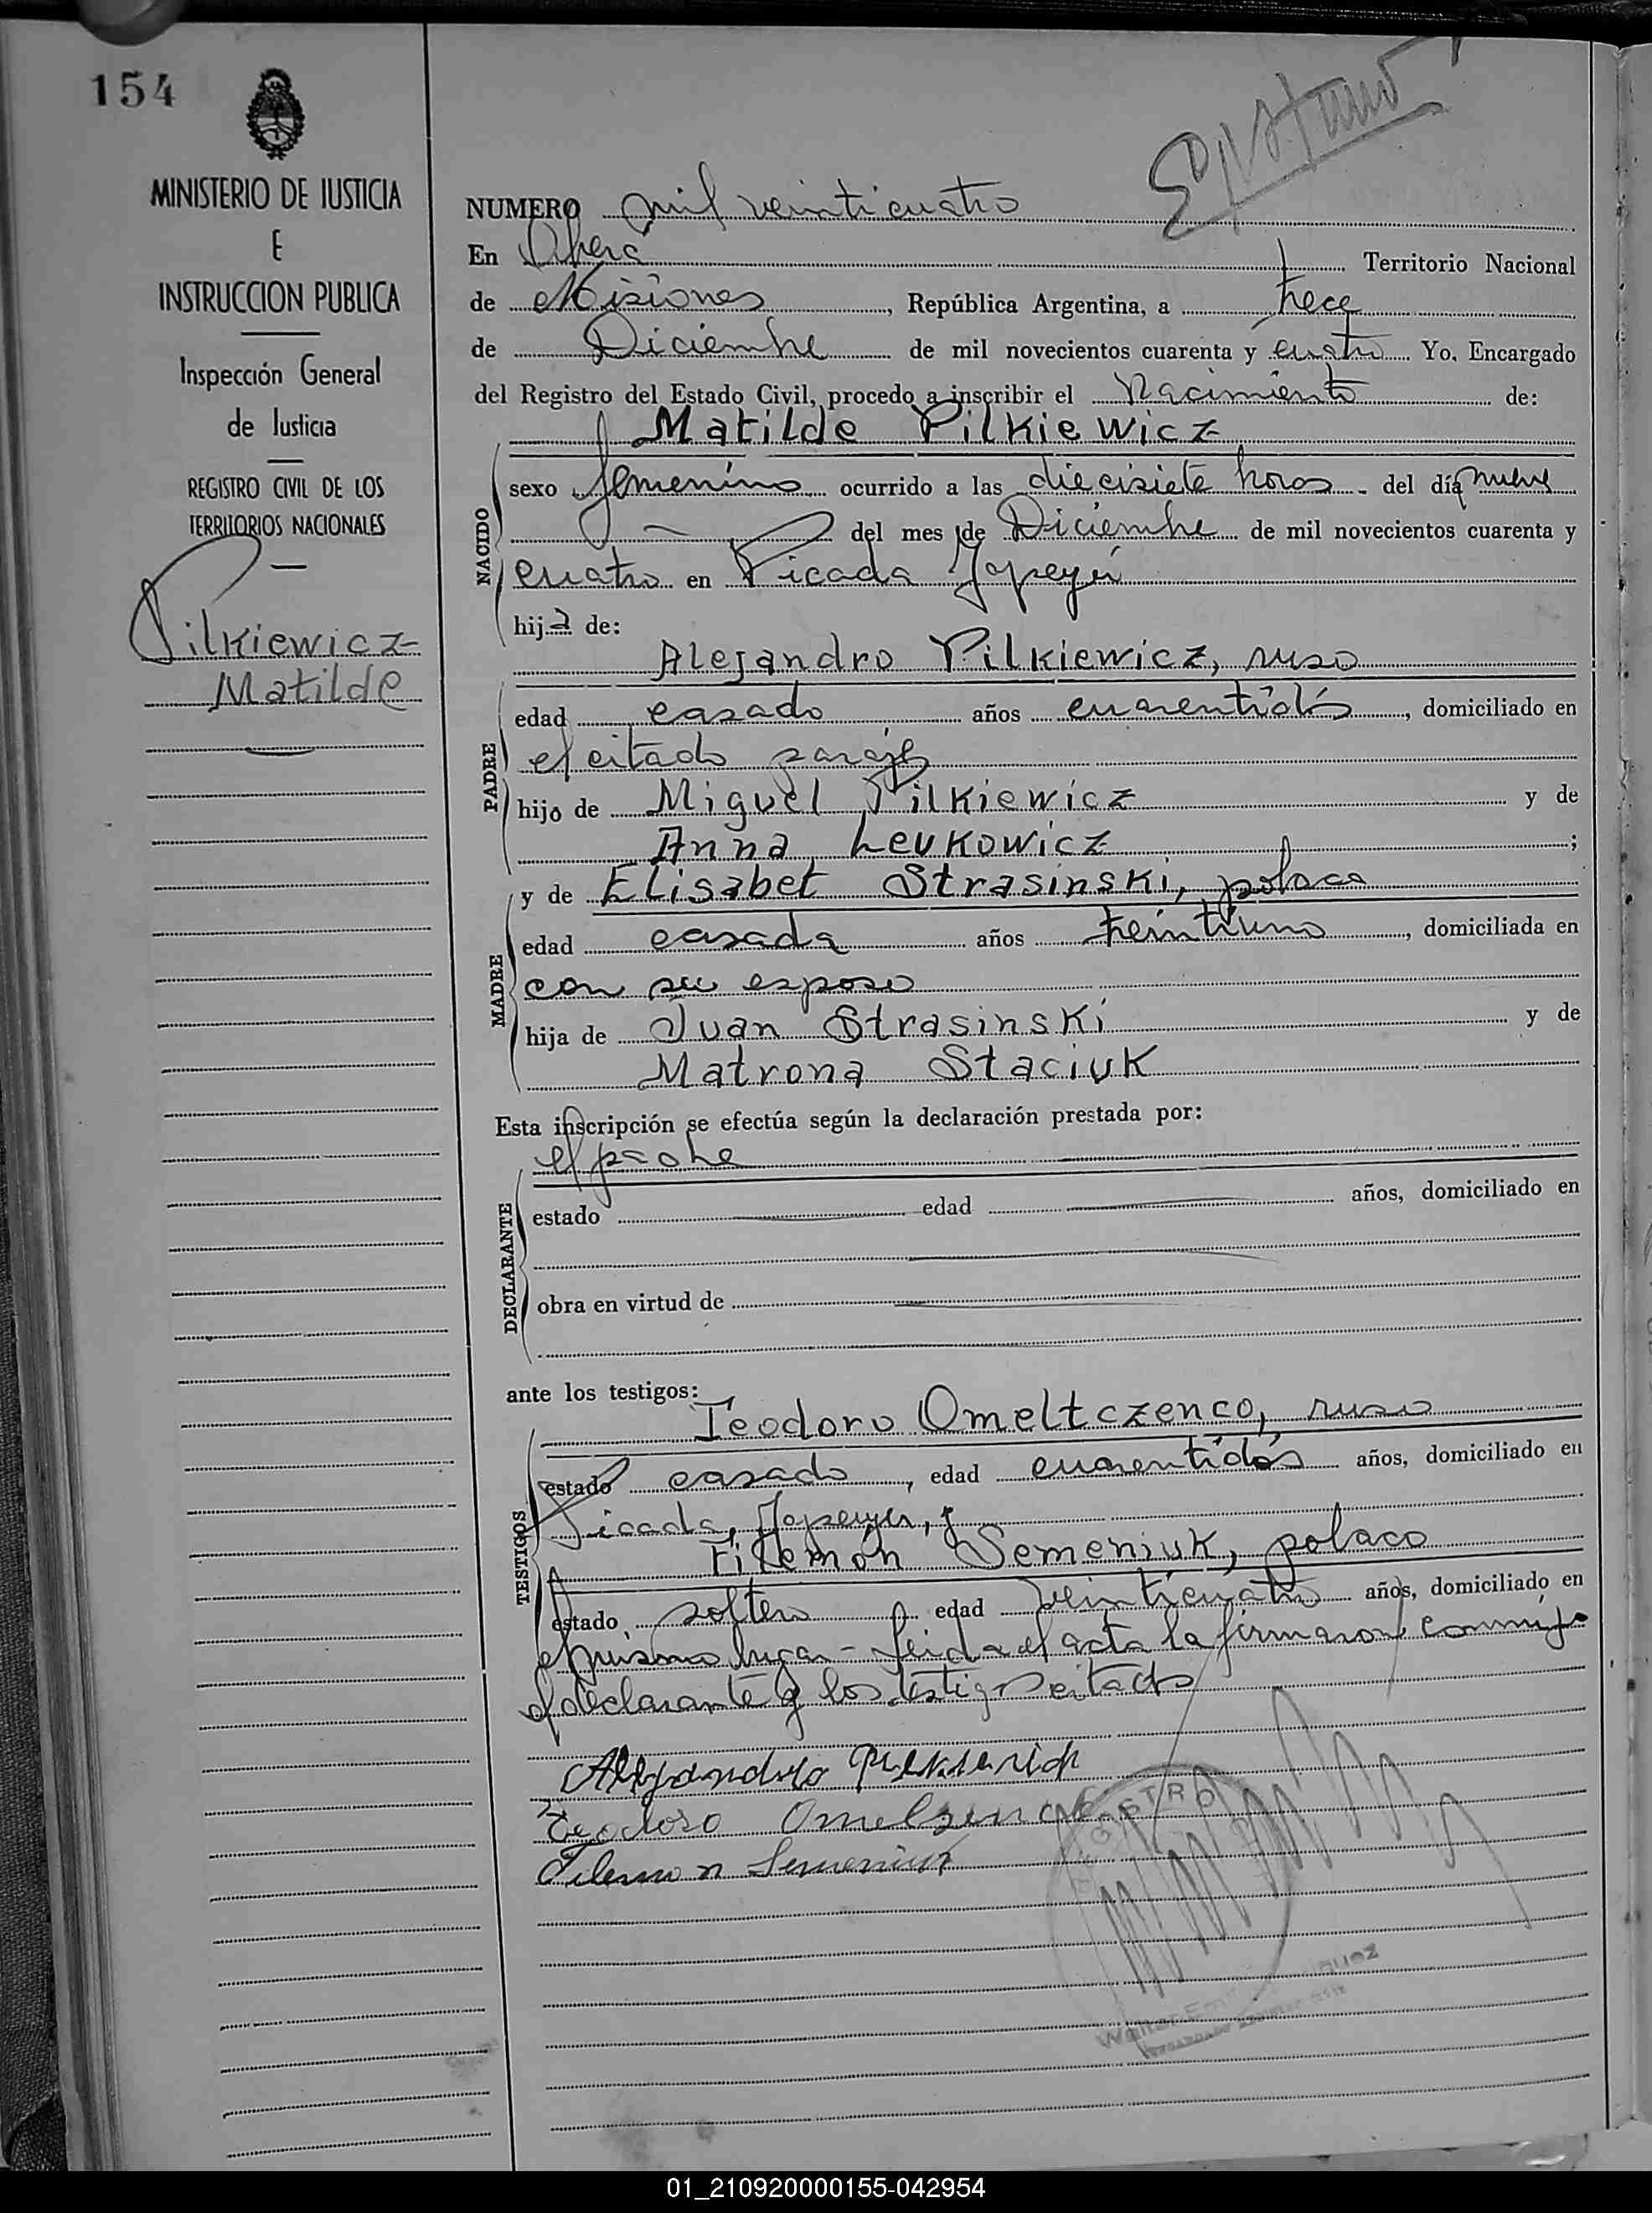 154
MINISTERIO DE JUSTICIA
E
INSTRUCCION PUBLICA
Inspección General
de Justicia
REGISTRO CIVIL DE LOS
TERRITORIOS NACIONALES
Pilkiewicz
Matilde
NUMERO mil veinticuatro
En Oberá Territorio Nacional
de Misiones, República Argentina, a trece
de Diciembre de mil novecientos cuarenta y cuatro Yo, Encargado
del Registro del Estado Civil, procedo a inscribir el Nacimiento de:
Matilde Pilkiewicz
NACIDO
sexo femenino ocurrido a las diecisiete horas - del día nueve
del mes de Diciembre de mil novecientos cuarenta y
cuatro en Picada Yapeyú
hija de:
Alejandro Pilkiewicz, ruso
PADRE
edad casado años cuarentidós, domiciliado en
el citado paraje
hijo de Miguel Pilkiewicz y de
Anna Leukowicz ;
y de Elisabet Strasinski, polaca
MADRE
edad casada años treintiuno, domiciliada en
con su esposo
hija de Juan Strasinski y de
Matrona Staciuk
Esta inscripción se efectúa según la declaración prestada por:
el padre
DECLARANTE
estado edad años, domiciliado en
obra en virtud de
ante los testigos:
Teodoro Omeltczenco, ruso
TESTIGOS
estado casado, edad cuarentidós años, domiciliado en
Picada Yapeyú, y
Filemón Semeniuk, polaco
estado soltero edad veinticuatro años, domiciliado en
el mismo lugar - Leida el acta la firmaron conmigo
el declarante y los testigos citados
Alejandro
Teodoro
Filemon Semeniuk
REGISTRO
01_210920000155-042954